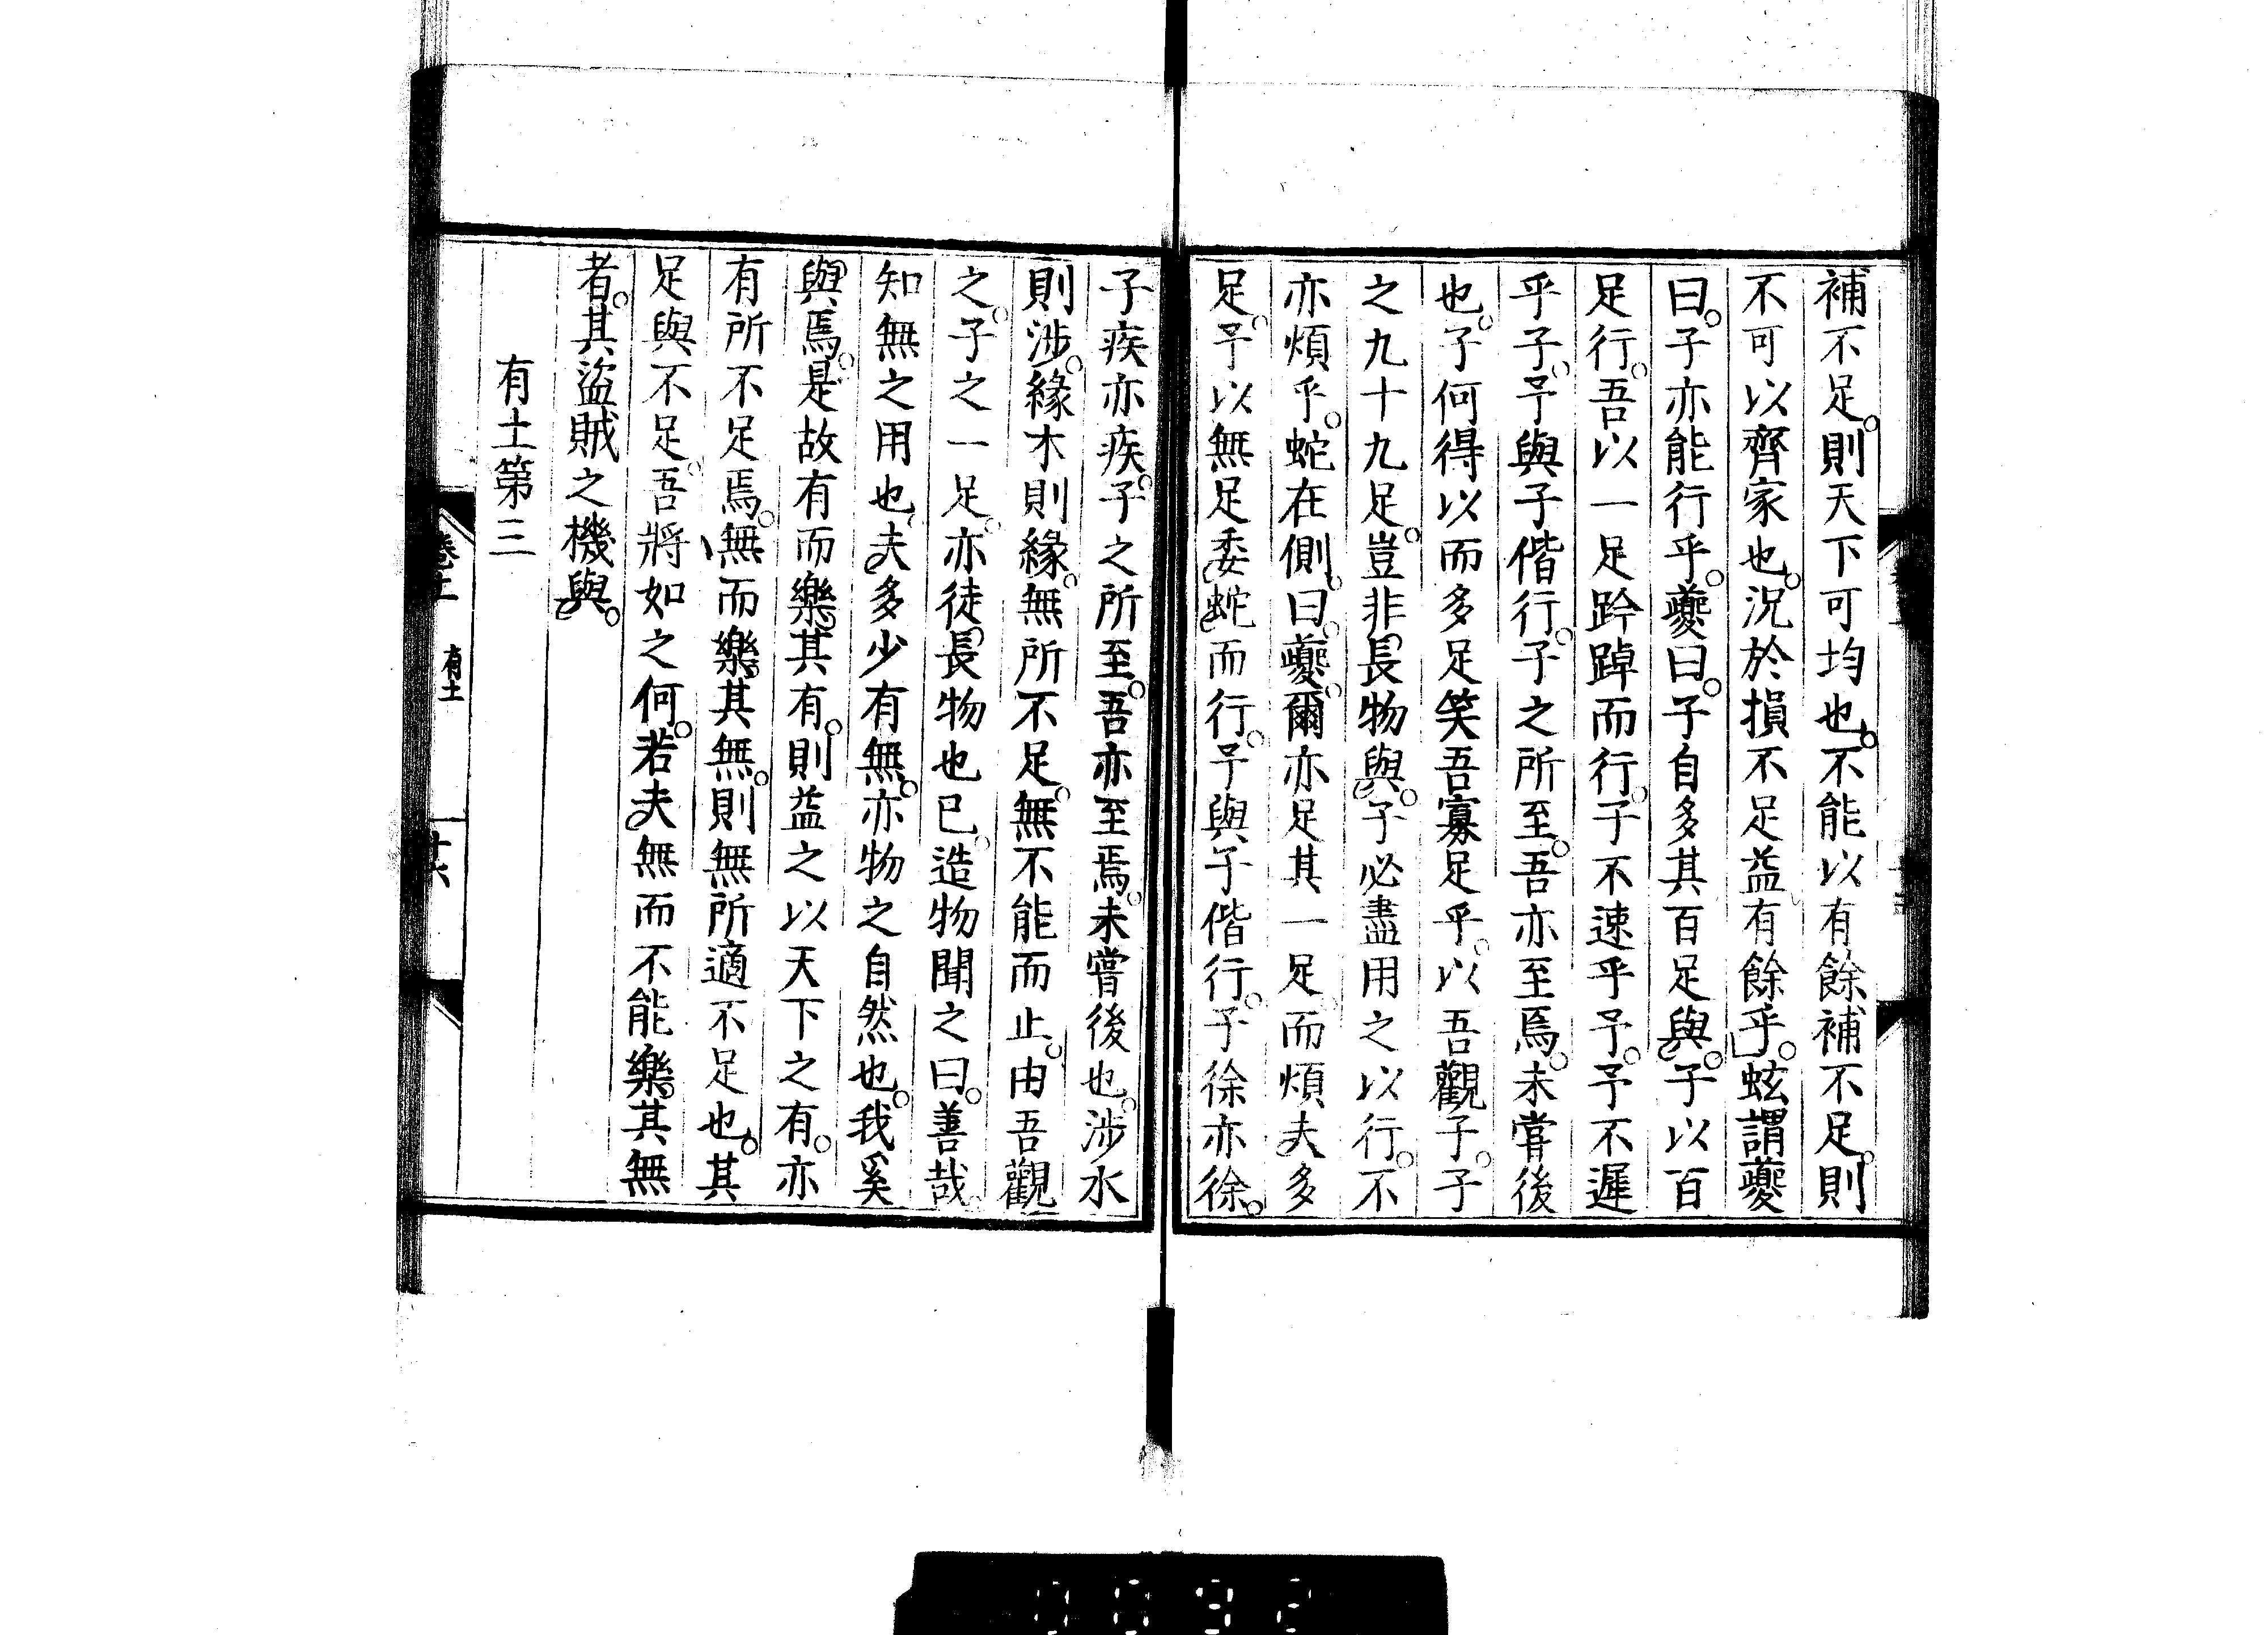 補不足。則天下可均也。不能以有餘補不足。則
不可以齊家也。況於損不足益有餘乎。蚿謂夔
曰。子亦能行乎。夔曰。子自多其百足與。子以百
足行。吾以一足踸踔而行。子不速乎予。予不遲
乎子。予與子偕行。子之所至。吾亦至焉。未嘗後
也。子何得以而多足笑吾寡足乎。以吾觀子。子
之九十九足。豈非長物與。子必盡用之以行。不
亦煩乎。蛇在側。曰。夔。爾亦足其一足。而煩夫多
足。予以無足委蛇而行。予與子偕行。子徐亦徐。
子疾亦疾。子之所至。吾亦至焉。未嘗後也。涉水
則涉。緣木則緣。無所不足。無不能而止。由吾觀
之。子之一足。亦徒長物也已。造物聞之曰。善哉。
知無之用也。夫多少有無。亦物之自然也。我奚
與焉。是故有而樂其有。則益之以天下之有。亦
有所不足焉。無而樂其無。則無所適不足也。其
足與不足。吾將如之何。若夫無而不能樂其無
者。其盜賊之機與。
有土第三
卷上 有土 十六